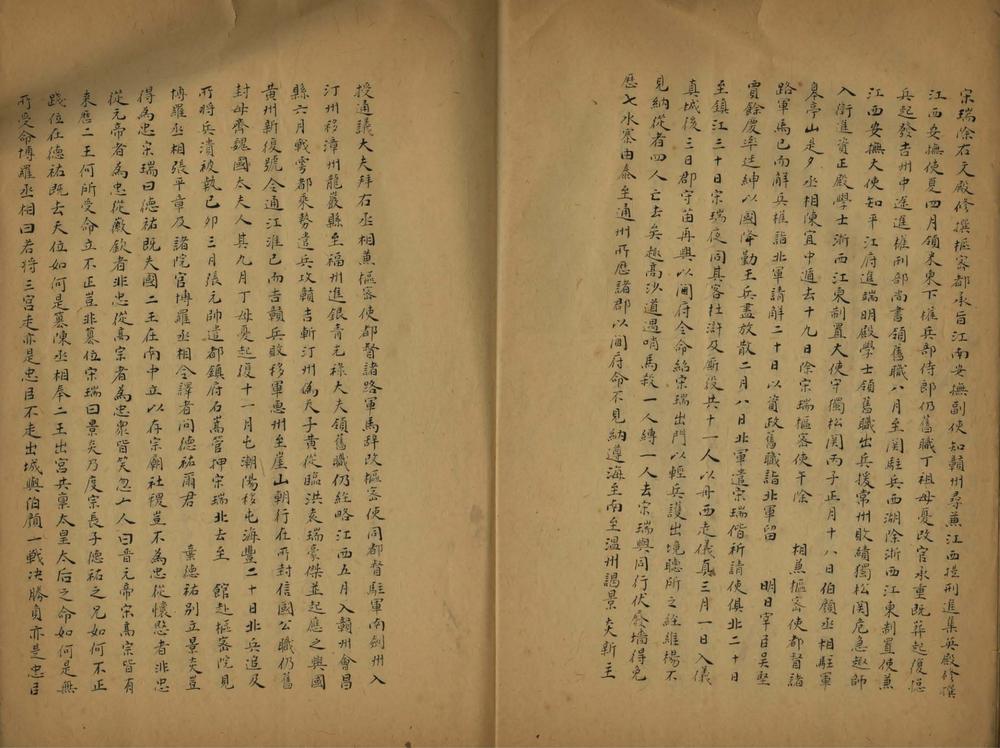 宋瑞除右文殿修撰樞密都承旨江南安撫副使知贛州尋兼江西提刑進集英殿修撰
江西安撫使夏四月領米東下擢兵部侍郎仍舊職丁祖母憂改官承重既葬起復摠
兵起發吉州中途進權刑部尚書領舊職八月至闕駐兵西湖除浙西江東制置使兼
江西安撫大使知平江府進端明殿學士領舊職出兵援常州敗績獨松関危急趣師
入衛進資正殿學士浙西江東制置大使守獨松関丙子正月十八日伯顔丞相駐軍
皋亭山是夕丞相陳宜中遁去十九日除宋瑞樞密使午除 相兼樞密使都督諸
路軍馬已而解兵權詣北軍請解二十日以資政舊職詣北軍留 明日宰臣吳堅
賈餘慶率廷紳以國降勤王兵盡放散二月八日北軍遣宋瑞偕祈請使俱北二十日
至鎮江三十日宋瑞夜同其客杜滸及廝役共十一人以舟西走儀真三月一日入儀
真城後三日郡守苗再興以閫府令命給宋瑞出門以輕兵護出境聽所之經維楊不
見納從者四人亡去矣趣高沙道遇哨馬殺一人縛一人去宋瑞與同行伏廢墻得免
歷七水寨由泰至通州所歷諸郡以閫府命不見納遵海至南至溫州謁景炎新主
授通議大夫拜右丞相兼樞密使都督諸路軍馬辞改樞密使同都督駐軍南劍州入
汀州移漳州龍巖縣至福州進銀青光祿大夫領舊職仍經略江西五月入贛州會昌
縣六月戰雩都乘勢遣兵攻贛吉斬汀州偽天子黄從臨洪袁瑞豪傑並起應之興國
黄州新復號令通江淮已而吉贛兵敗移軍惠州至崖山朝行在所封信國公職仍舊
封母齊魏國太夫人其九月丁母憂起復十一月屯潮陽移屯海豐二十日北兵追及
所將兵潰被執己卯三月張元帥遣都鎮府石嵩管押宋瑞北去至 館赴樞密院見
博羅丞相張平章及諸院官博羅丞相令譯者问德祐爾君 棄德祐別立景炎豈
得為忠宋瑞曰德祐既失國二王在南中立以存宗廟社稷豈不為忠從懷愍者非忠
從元帝者為忠從徽欽者非忠從高宗者為忠衆皆笑忽一人曰晋元帝宋高宗皆有
来歷二王何所受命立不正豈非篡位宋瑞曰景炎乃度宗長子德祐之兄如何不正
踐位在德祐既去天位如何是篡陳丞相奉二王出宮共稟太皇太后之命如何是無
所受命博羅丞相曰若將三宮走亦是忠臣不走出城與伯顔一戰决勝負亦是忠臣